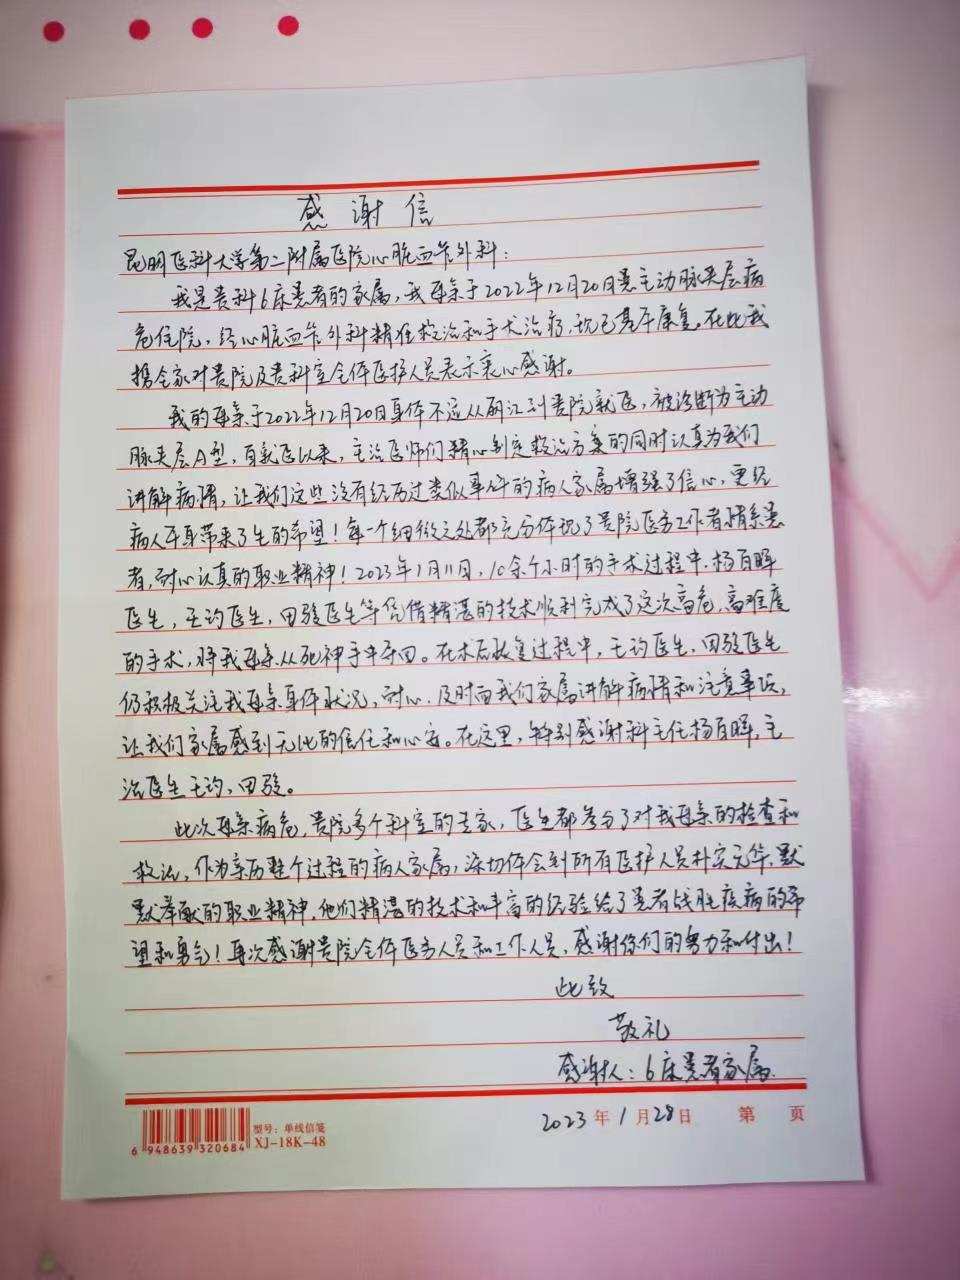 感谢信
昆明医科大学第二附属医院心脏血管外科：
我是贵科6床患者的家属，我母亲于2022年12月20日患主动脉夹层病
危住院，经心脏血管外科精准救治和手术治疗，现已基本康复。在此我
携全家对贵院及贵科室全体医护人员表示衷心感谢。
我的母亲于2022年12月20日身体不适从丽江到贵院就医，被诊断为主动
脉夹层A型，自就医以来，主治医师们精心制定救治方案的同时认真为我们
讲解病情，让我们这些没有经历过类似事件的病人家属增强了信心，更给
病人本身带来了生的希望！每一个细微之处都充分体现了贵院医务工作者情系患
者，耐心认真的职业精神！2023年1月11日，10余个小时的手术过程中，杨百晖
医生，王均医生，田骏医生等凭借精湛的技术顺利完成了这次高危、高难度
的手术，将我母亲从死神手中夺回。在术后恢复过程中，王均医生，田骏医生
仍积极关注我母亲身体状况，耐心、及时向我们家属讲解病情和注意事项，
让我们家属感到无比的信任和心安。在这里，特别感谢科主任杨百晖，主
治医生王均，田骏。
此次母亲病危，贵院多个科室的专家，医生都参与了对我母亲的检查和
救治，作为亲历整个过程的病人家属，深切体会到所有医护人员朴实无华、默
默奉献的职业精神，他们精湛的技术和丰富的经验给了患者战胜疾病的希
望和勇气！再次感谢贵院全体医务人员和工作人员，感谢你们的努力和付出！
此致
敬礼
感谢人：6床患者家属
2023年1月28日 第 页
型号：单线信笺
XJ-18K-48
6 948639 320684